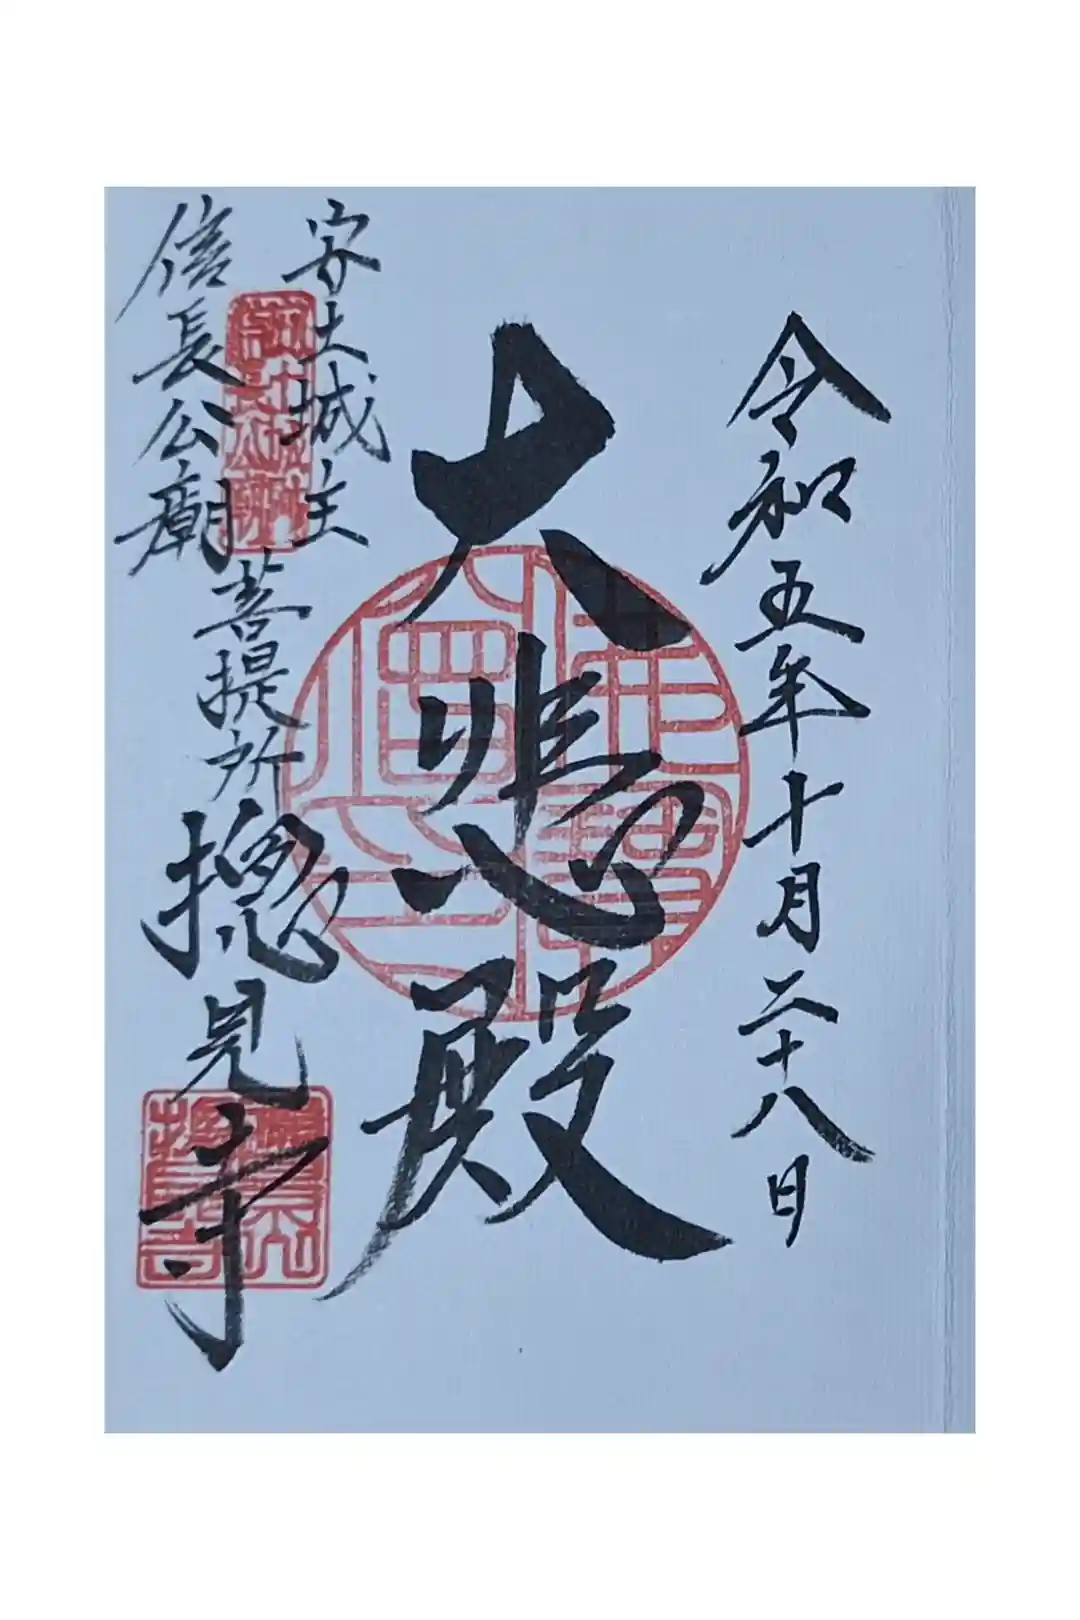 令和五年十月二十八日
大悲殿
安土城主
信長公廟
菩提所
摠見寺